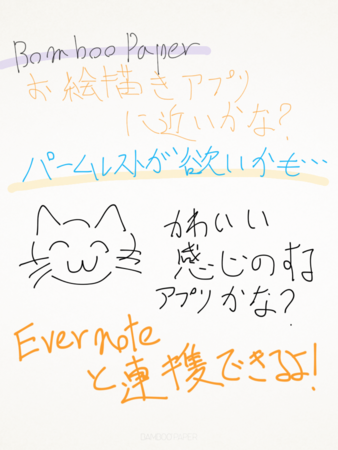 Bomboo Paper
お絵描きアプリ
に近いかな?
パームルストが欲いかも…
かわいい
感じのする
アプリかな?
Evernote
と連携できるよ!
BAMBOO PAPER